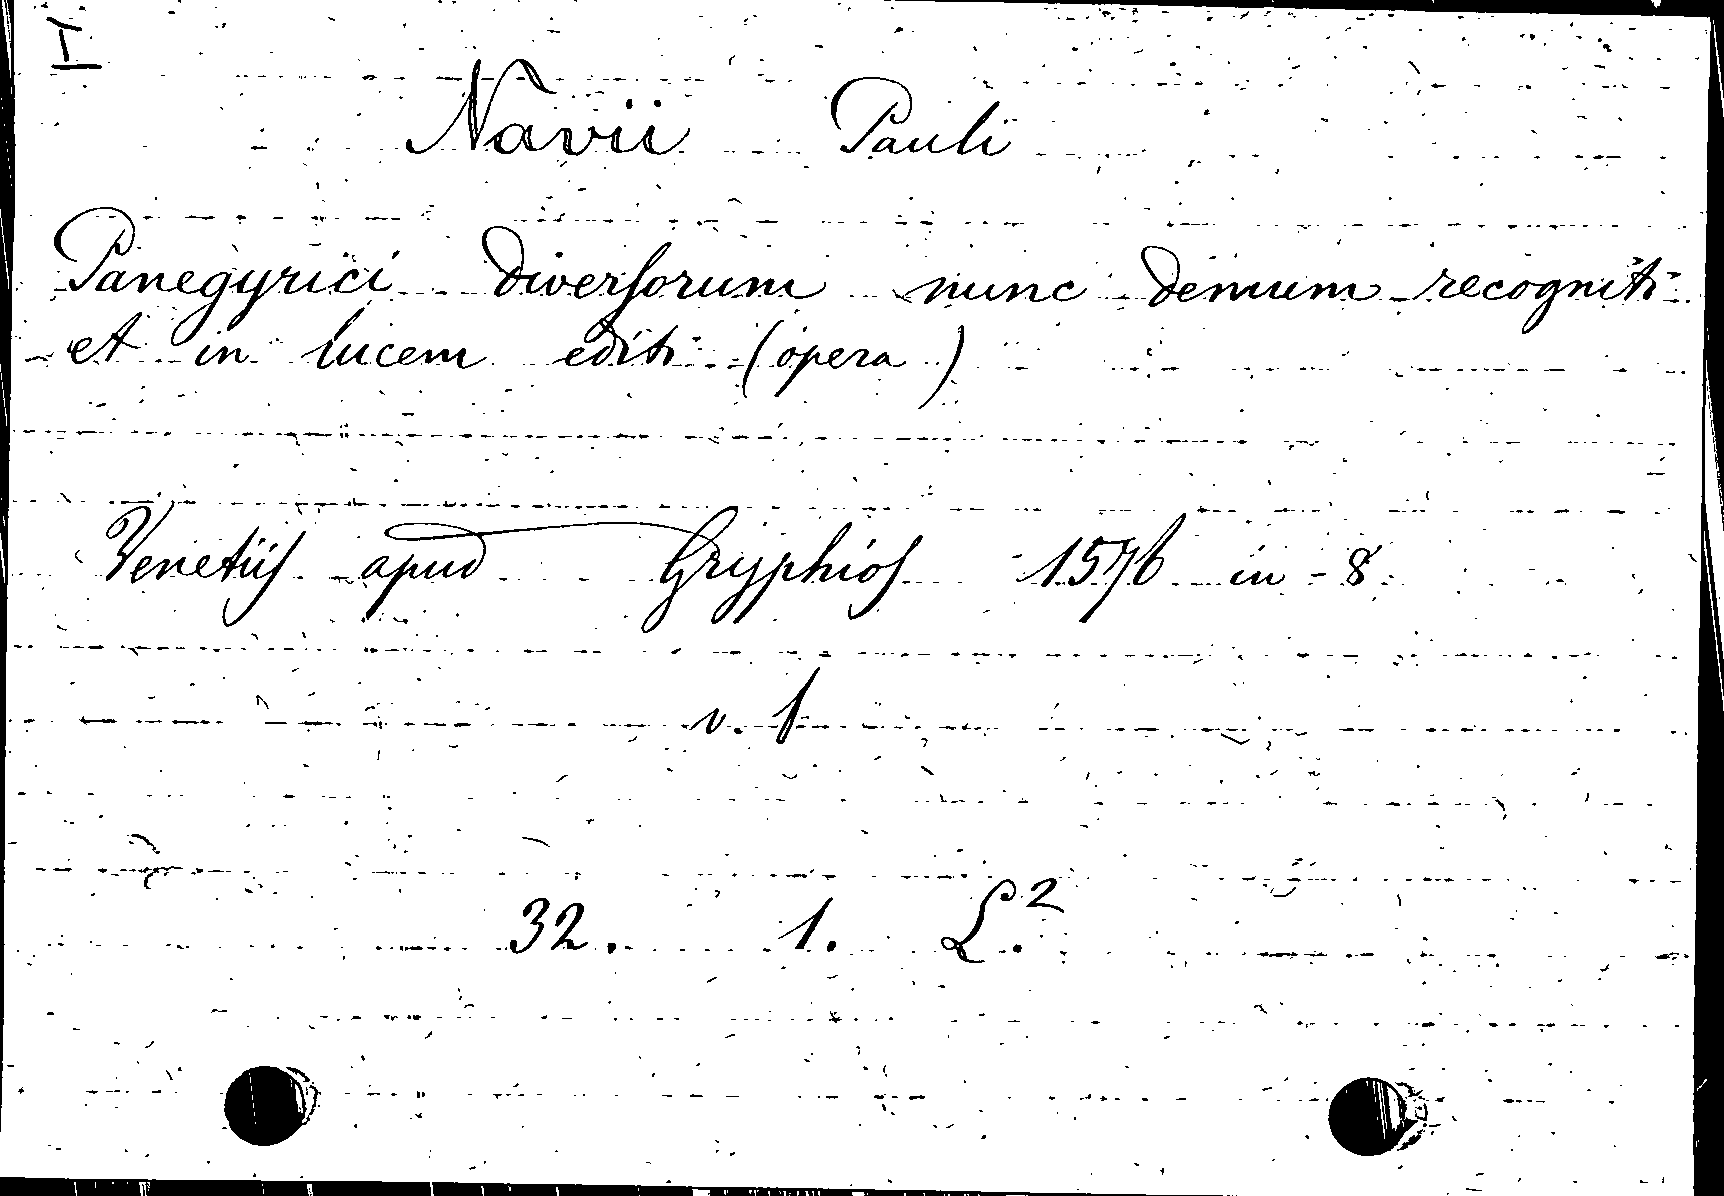 I
Navii Pauli
Panegyrici diverſorum nunc demum recogniti
et in lucem editi (opera)
Venetiiſ apud Gryphioſ 1576 in 8
v. f
32. 1. L.²